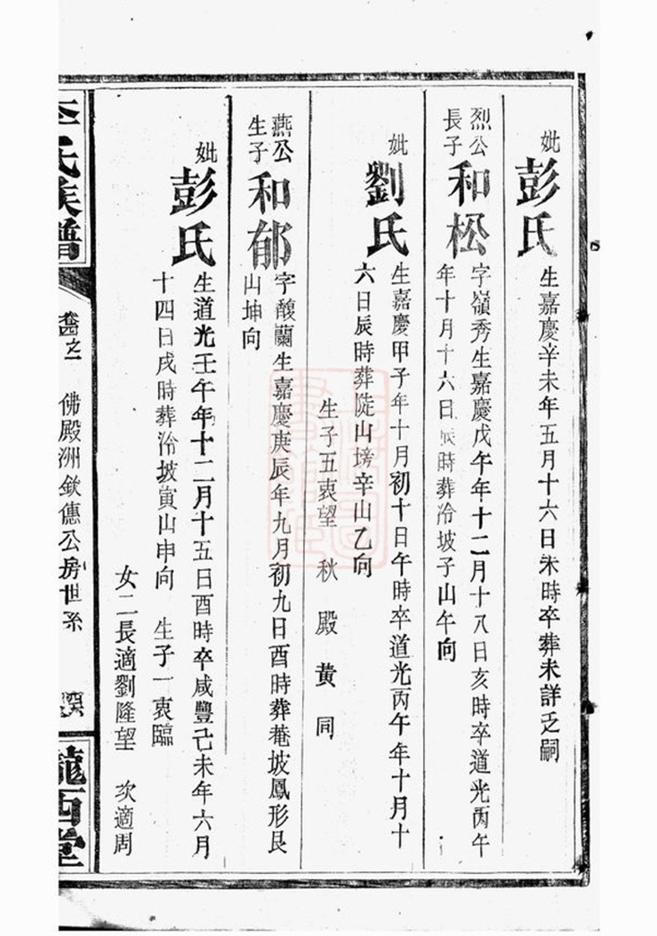 妣彭氏生嘉慶辛未年五月十六日未時卒葬未詳乏嗣
烈公長子和松字嶺秀生嘉慶戊午年十二月十八日亥時卒道光丙午
年十月十六日辰時葬冷坡子山午向
妣劉氏生嘉慶甲子年十月初十日午時卒道光丙午年十月十
六日辰時葬陡山塝辛山乙向
生子五衷望 秋 殿 黄 同
燕公生子和郁字馥蘭生嘉慶庚辰年九月初九日酉時葬菴坡鳳形艮
山坤向
妣彭氏生道光壬午年十二月十五日酉時卒咸豐己未年六月
十四日戌時葬冷坡寅山申向 生子一衷臨
女二長適劉隆望 次適周
李氏族譜
佛殿洲欽德公房世系
隴西堂